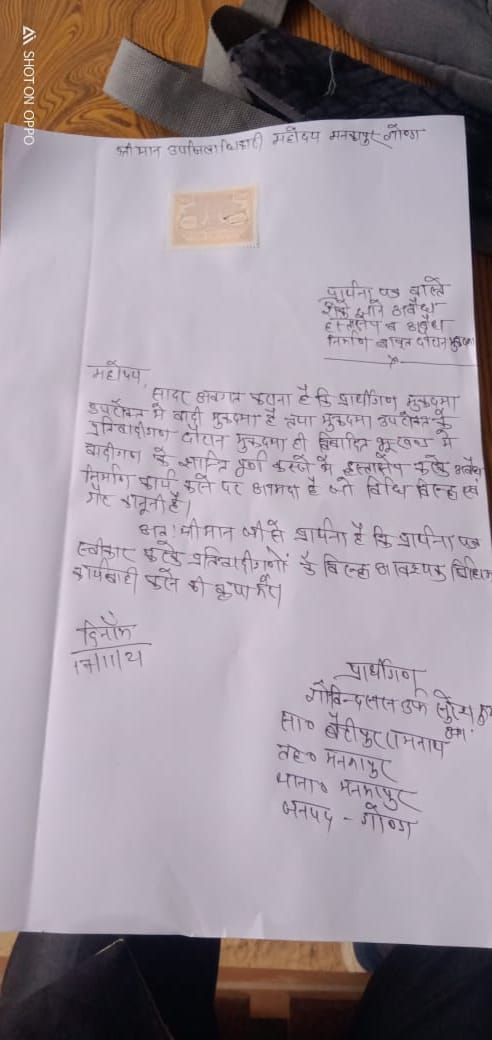 श्रीमान उपजिलाधिकारी महोदय मनकापुर गोण्डा
प्रार्थना पत्र वास्ते
रोके जाने अवैध
हस्तक्षेप व अवैध
निर्माण बावत दौरान मुकदमा
महोदय,
सादर अवगत कराना है कि प्रार्थीगण मुकदमा
उपरोक्त में वादी मुकदमा है तथा मुकदमा उपरोक्त के
प्रतिवादीगण दौरान मुकदमा ही विवादित भूखण्ड में
वादीगण के शान्ति पूर्ण कब्जे में हस्तक्षेप करके अवैध
निर्माण कार्य करने पर आमादा है जो विधि विरूद्ध एवं
गैर कानूनी है।
अतः श्रीमान जी से प्रार्थना है कि प्रार्थना पत्र
स्वीकार करके प्रतिवादीगणों के विरूद्ध आवश्यक विधिक
कार्यवाही करने की कृपा करें।
दिनाँक
17/11/21
प्रार्थीगण
गोविन्दलाल उर्फ सुरेश
सा० रामनाथ
तह० मनकापुर
थाना० मनकापुर
जनपद - गोण्डा
SHOT ON OPPO